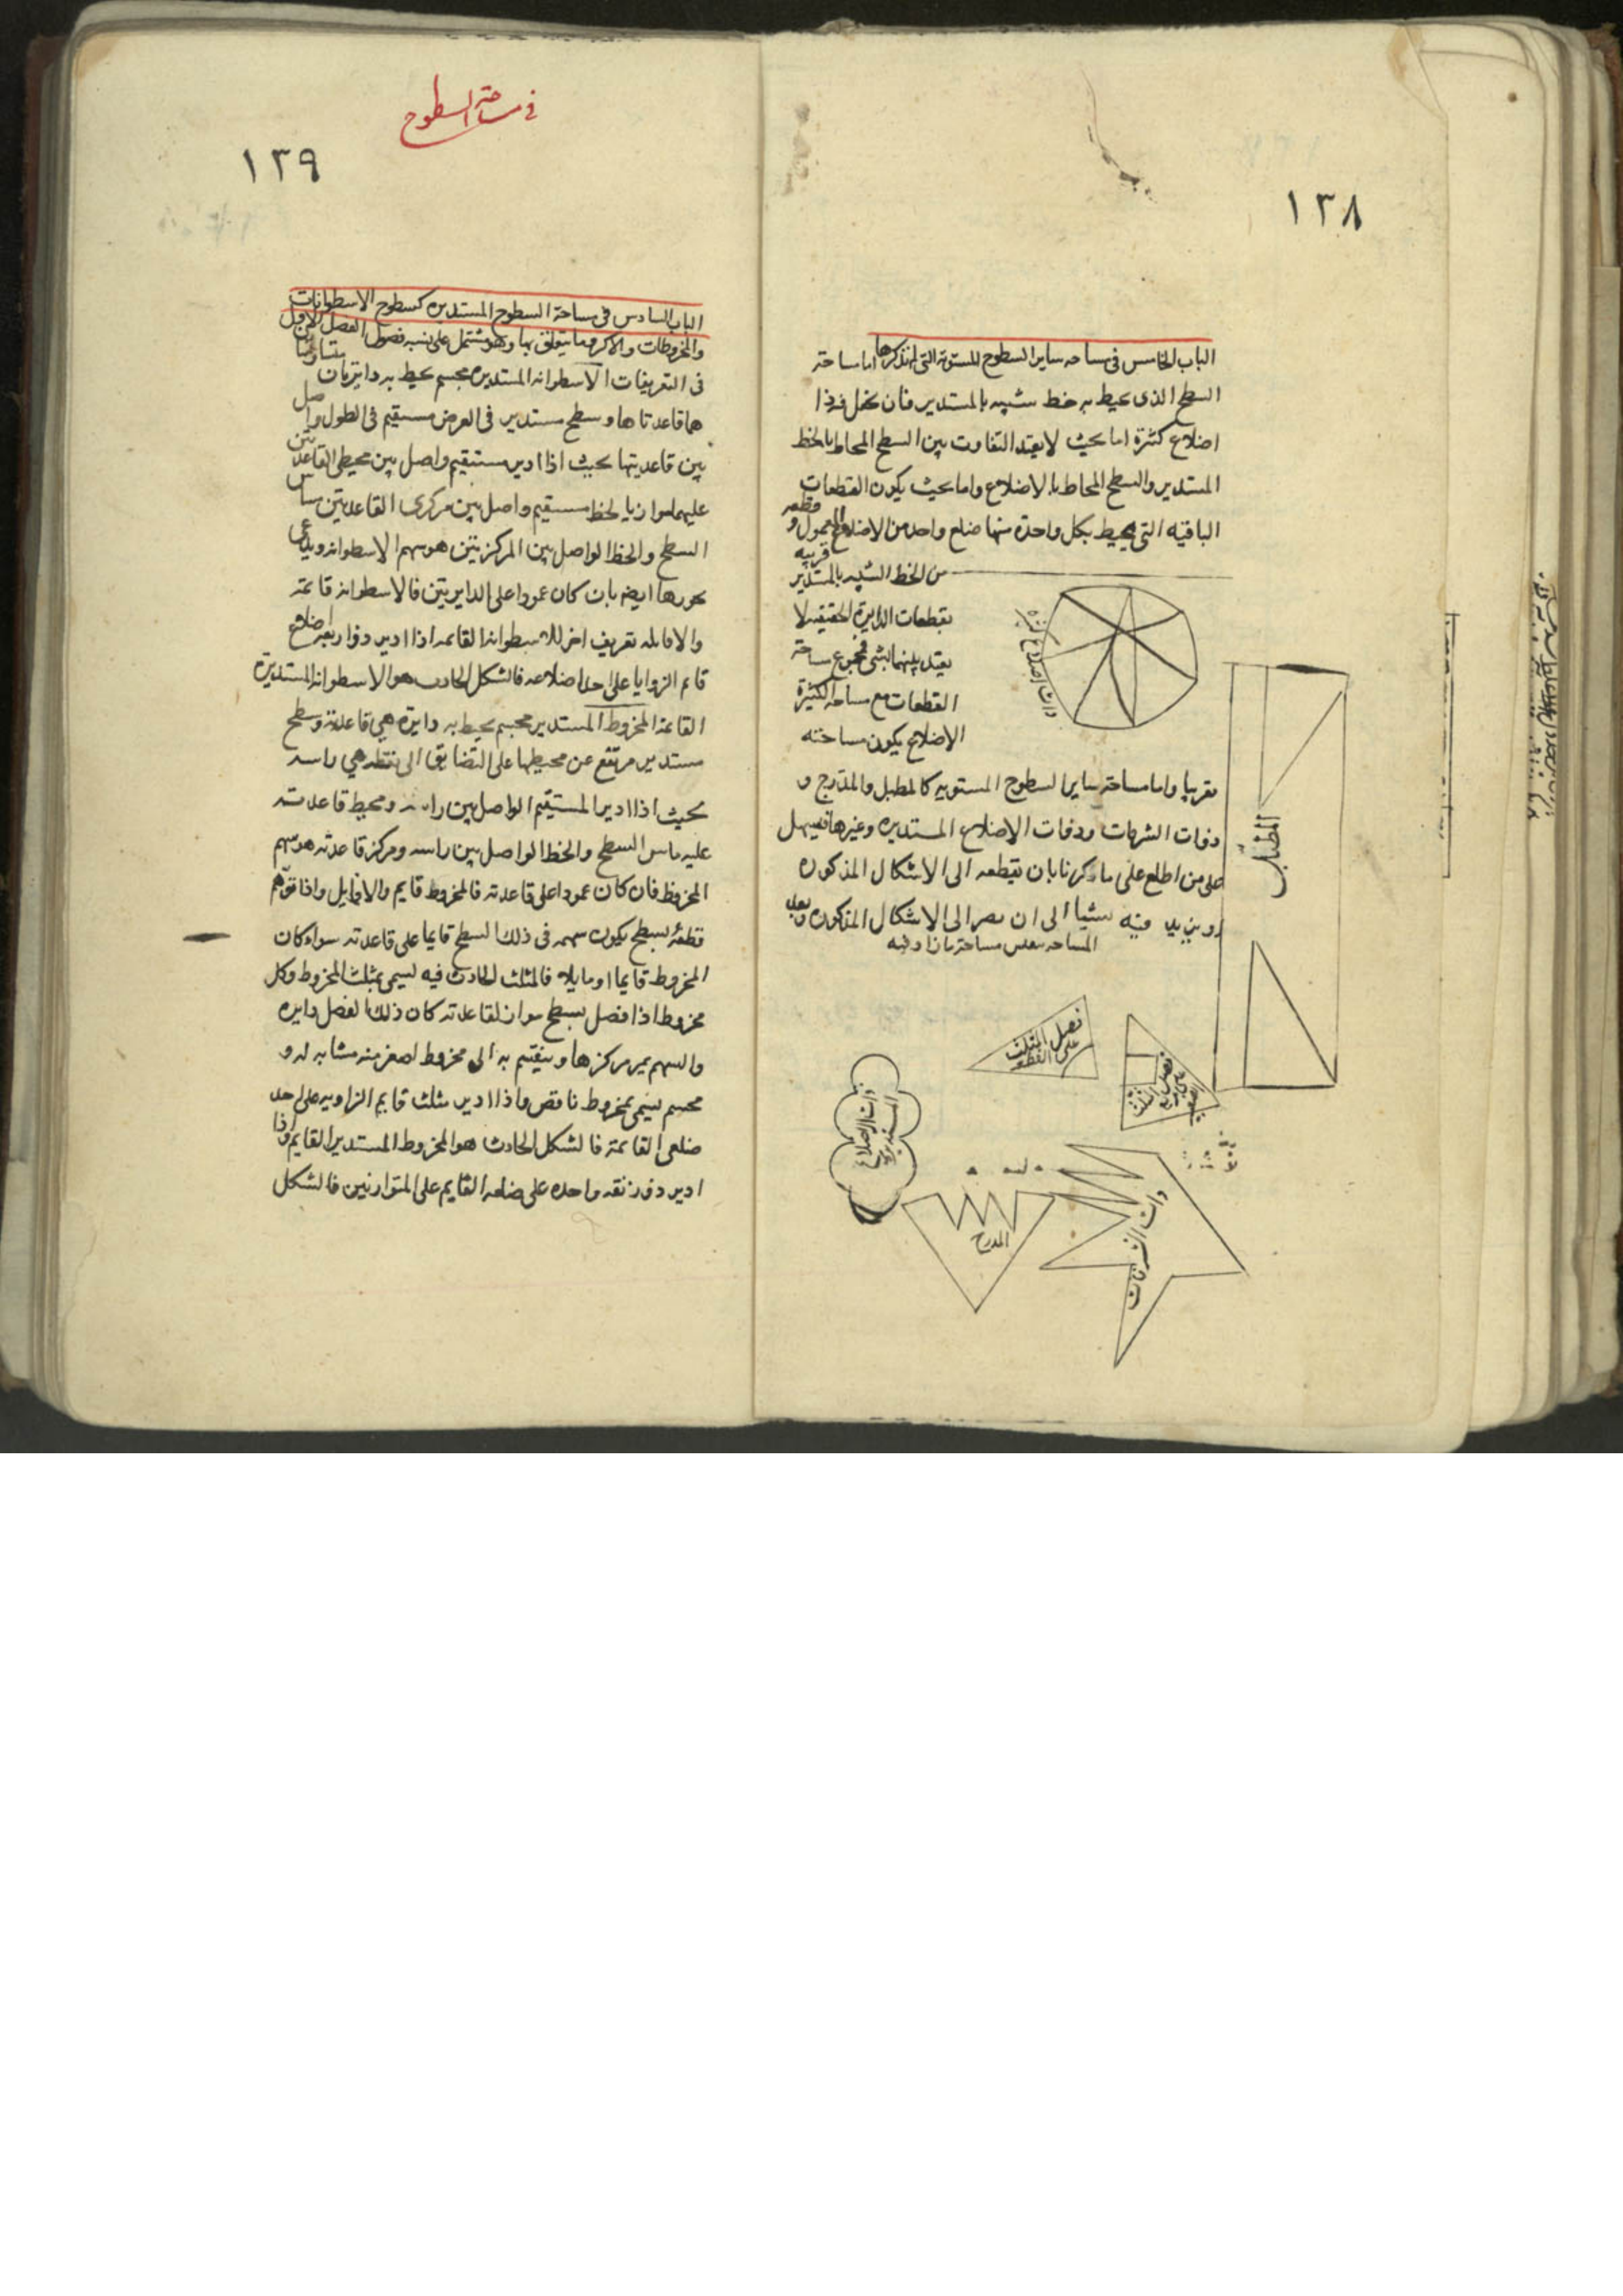 ١٣٨
الباب الخامس فى مساحه ساير السطوح المستويه التى لم نذكرها اما مساحة
السطح الذى يحيط به خط شبيه بالمستدير فبان يخل فيه ذا
اضلاع كثيرة اما بحيث لا يعتد التفاوت بين السطح المحاط بالخط
المستدير والسطح المحاط بالاضلاع واما بحيث يكون القطعات
الباقيه التى يحيط بكل واحدة منها ضلع واحد من الاضلاع المعمول وقطعه
قريبه
من الخط الشبيه بالمستدير
بقطعات الدايرة الحقيقيه لا
يعتد بينهما بشى فمجموع مساحة
القطعات مع مساحه الكثيرة
الاضلاع يكون مساحته
ذات اضلاع كثيره
تقريبا واما مساحة ساير السطوح المستويه كالمطبل والمدرج و
ذوات الشرفات وذوات الاضلاع المستديره وغيرها فيسهل
على من اطلع على ما ذكرنا بان نقطعه الى الاشكال المذكوره
او نزيد فيه شيا الى ان يصير الى الاشكال المذكوره وبعد
المساحه ينقص مساحة ما زاد فيه
المطبل
فصل المثلث
على القطعه
ذات الاضلاع
المستديره
المدرج
ذات الشرفات
فى مساحة السطوح
١٣٩
الباب السادس فى مساحة السطوح المستديره كسطوح الاسطوانات
والمخروطات والاكر وما يتعلق بها وهو مشتمل على فصول الفصل الاول
فى التعريفات الاسطوانه المستديره مجسم يحيط به دايرتان متساويتان
هما قاعدتاها وسطح مستدير فى العرض مستقيم فى الطول واصل
بين قاعديتها بحيث اذا ادير مستقيم واصل بين محيطى القاعدتين
عليهما موازيا لخط مستقيم واصل بين مركزى القاعدتين ماس
السطح والخط الواصل بين المركزين هو سهم الاسطوانه ويدعى
محورها ايضا بان كان عمودا على الدايرتين فالاسطوانه قائمة
والا فمائله تعريف اخر للاسطوانه القائمه اذا ادير ذو اربعه اضلاع
قائم الزوايا على احد اضلاعه فالشكل الحادث هو الاسطوانه المستديرة
القائمة المخروط المستدير مجسم يحيط به دايرة هي قاعدته وسطح
مستدير مرتفع عن محيطها على التضايق الى نقطه هي راسه
بحيث اذا ادير المستقيم الواصل بين راسه ومحيط قاعدته
عليه ماس السطح والخط الواصل بين راسه ومركز قاعدته هو سهم
المخروط فان كان عمودا على قاعدته فالمخروط قايم والا فمايل واذا توهم
قطعه بسطح يكون سهمه فى ذلك السطح قايما على قاعدته سواء كان
المخروط قايما او مايلا فالمثلث الحادث فيه يسمى بمثلث المخروط وكل
مخروط اذا فصل بسطح مواز لقاعدته كان ذلك الفصل دايره
والسهم يمر بمركزها وينقسم به الى مخروط اصغر منه مشابه له و
مجسم يسمى بمخروط ناقص واذا ادير مثلث قايم الزاويه على احد
ضلعى القائمة فالشكل الحادث هو المخروط المستدير القايم واذا
ادير ذو زنقه واحده على ضلعه القايم على المتوازيين فالشكل